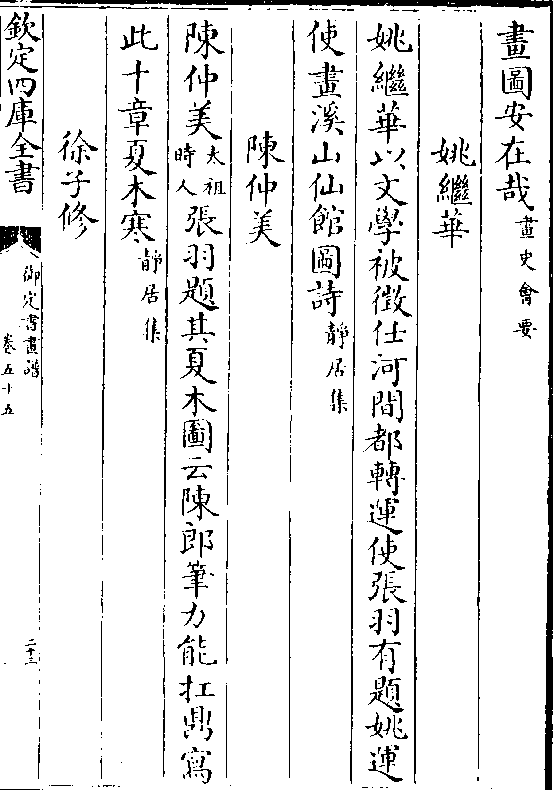 畫圖安在哉畫史會要
姚繼華
姚繼華以文學被徴仕河間都轉運使張羽有題姚運
使畫溪山仙館圖詩靜居集
陳仲美
陳仲美太祖時人張羽題其夏木圖云陳郎筆力能扛鼎寫
此十章夏木寒靜居集
徐子修
欽定四庫全書
御定書畫譜
卷五十五
二十三